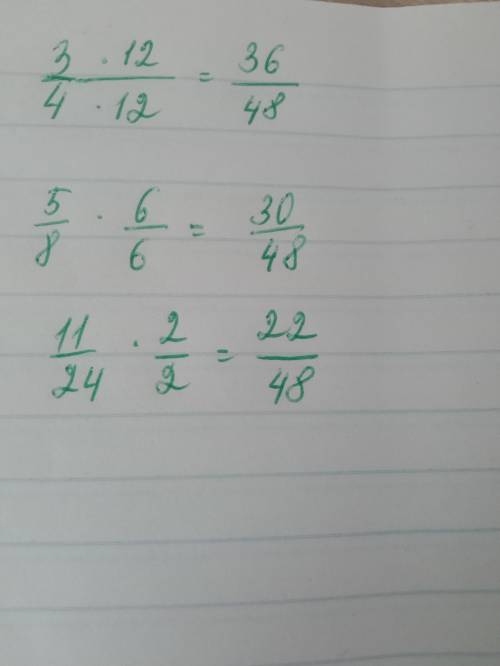 3 · 12 / 4 · 12 = 36 / 48
5 / 8 · 6 / 6 = 30 / 48
11 / 24 · 2 / 2 = 22 / 48